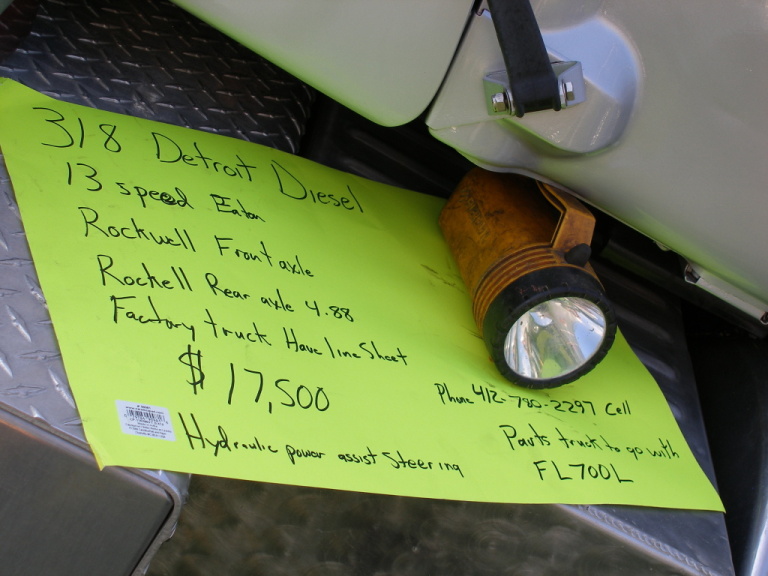 318 Detroit Diesel
13 speed Eaton
Rockwell Front axle
Rockell Rear axle 4.88
Factory truck Have line Sheet
$17,500
Phone 412-780-2297 Cell
Hydraulic power assist Steering
Parts truck to go with
FL700L